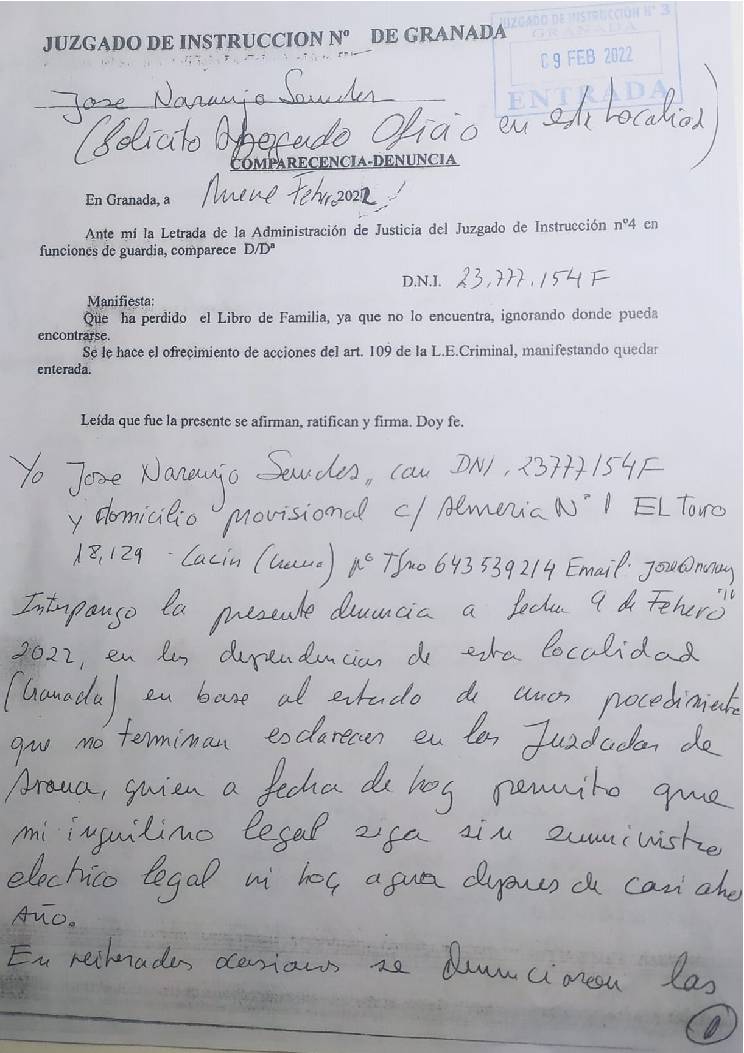 JUZGADO DE INSTRUCCION Nº DE GRANADA
JUZGADO DE INSTRUCCIÓN Nº 3
GRANADA
09 FEB 2022
ENTRADA
Jose Naranjo
(Solicito Abogado Oficio en esta Localidad)
COMPARECENCIA-DENUNCIA
En Granada, a Nueve Febr. 2022
Ante mí la Letrada de la Administración de Justicia del Juzgado de Instrucción nº4 en
funciones de guardia, comparece D/Dª
D.N.I. 23,777.154 F
Manifiesta:
Que ha perdido el Libro de Familia, ya que no lo encuentra, ignorando donde pueda
encontrarse.
Se le hace el ofrecimiento de acciones del art. 109 de la L.E.Criminal, manifestando quedar
enterada.
Leída que fue la presente se afirman, ratifican y firma. Doy fe.
Yo Jose Naranjo con DNI. 23777154F
y domicilio provisional c/ Almeria Nº 1 EL Turro
18,129 - Cacin (Grana) nº Tfno 643539214 Email:
Interpongo la presente denuncia a fecha 9 de Febero
2022, en las dependencias de esta localidad
(Granada) en base al estado de unos procedimiento
que no terminan esclarecer en los Juzdados de
Arona, quien a fecha de hoy permito que
mi inquilino legal siga sin suministro
electrico legal ni hoy agua depues de casi
Año.
En reiterades ocasiones se denunciaron las